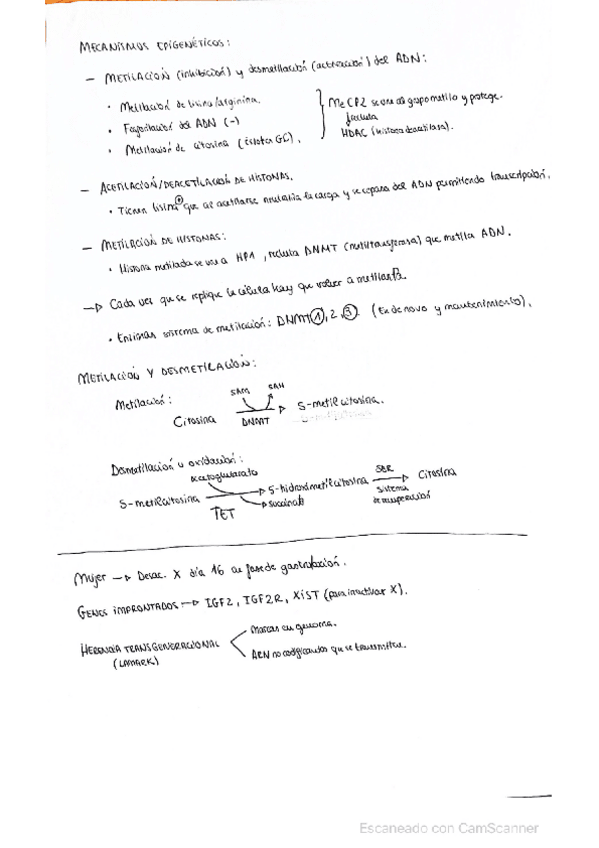 MECANISMOS EPIGENÉTICOS:
- METILACIÓN (inhibición) y desmetilación (activación) del ADN:
· Metilación de lisina/arginina.
· Fosforilación del ADN (-)
· Metilación de citosina (islotes GC).
MeCP2 se une al grupo metilo y protege.
recluta
HDAC (histona deacetilasa).
- ACETILACIÓN/DEACETILACIÓN DE HISTONAS.
· Tienen lisina⊕ que al acetilarse neutraliza la carga y se separa del ADN permitiendo transcripción.
- METILACIÓN DE HISTONAS:
· Histona metilada se une a HPA, recluta DNMT (metiltransferasa) que metila ADN.
→ Cada vez que se replique la célula hay que volver a metilar
· Enzimas sistema de metilación: DNMT①, 2, ③. (En de novo y mantenimiento).
METILACIÓN Y DESMETILACIÓN:
Metilación:
SAM SAH
Citosina → 5-metilcitosina.
DNMT
Desmetilación u oxidación:
α-cetoglutarato
5-metilcitosina → 5-hidroximetilcitosina → Citosina
TET
succinato
SER
sistema
de recuperación
Mujer → Desac. X día 16 en fase de gastrulación.
GENES IMPRONTADOS → IGF2, IGF2R, XIST (para inactivar X).
HERENCIA TRANSGENERACIONAL
(LAMARK)
Marcas en genoma.
ARN no codificantes que se transmiten.
Escaneado con CamScanner